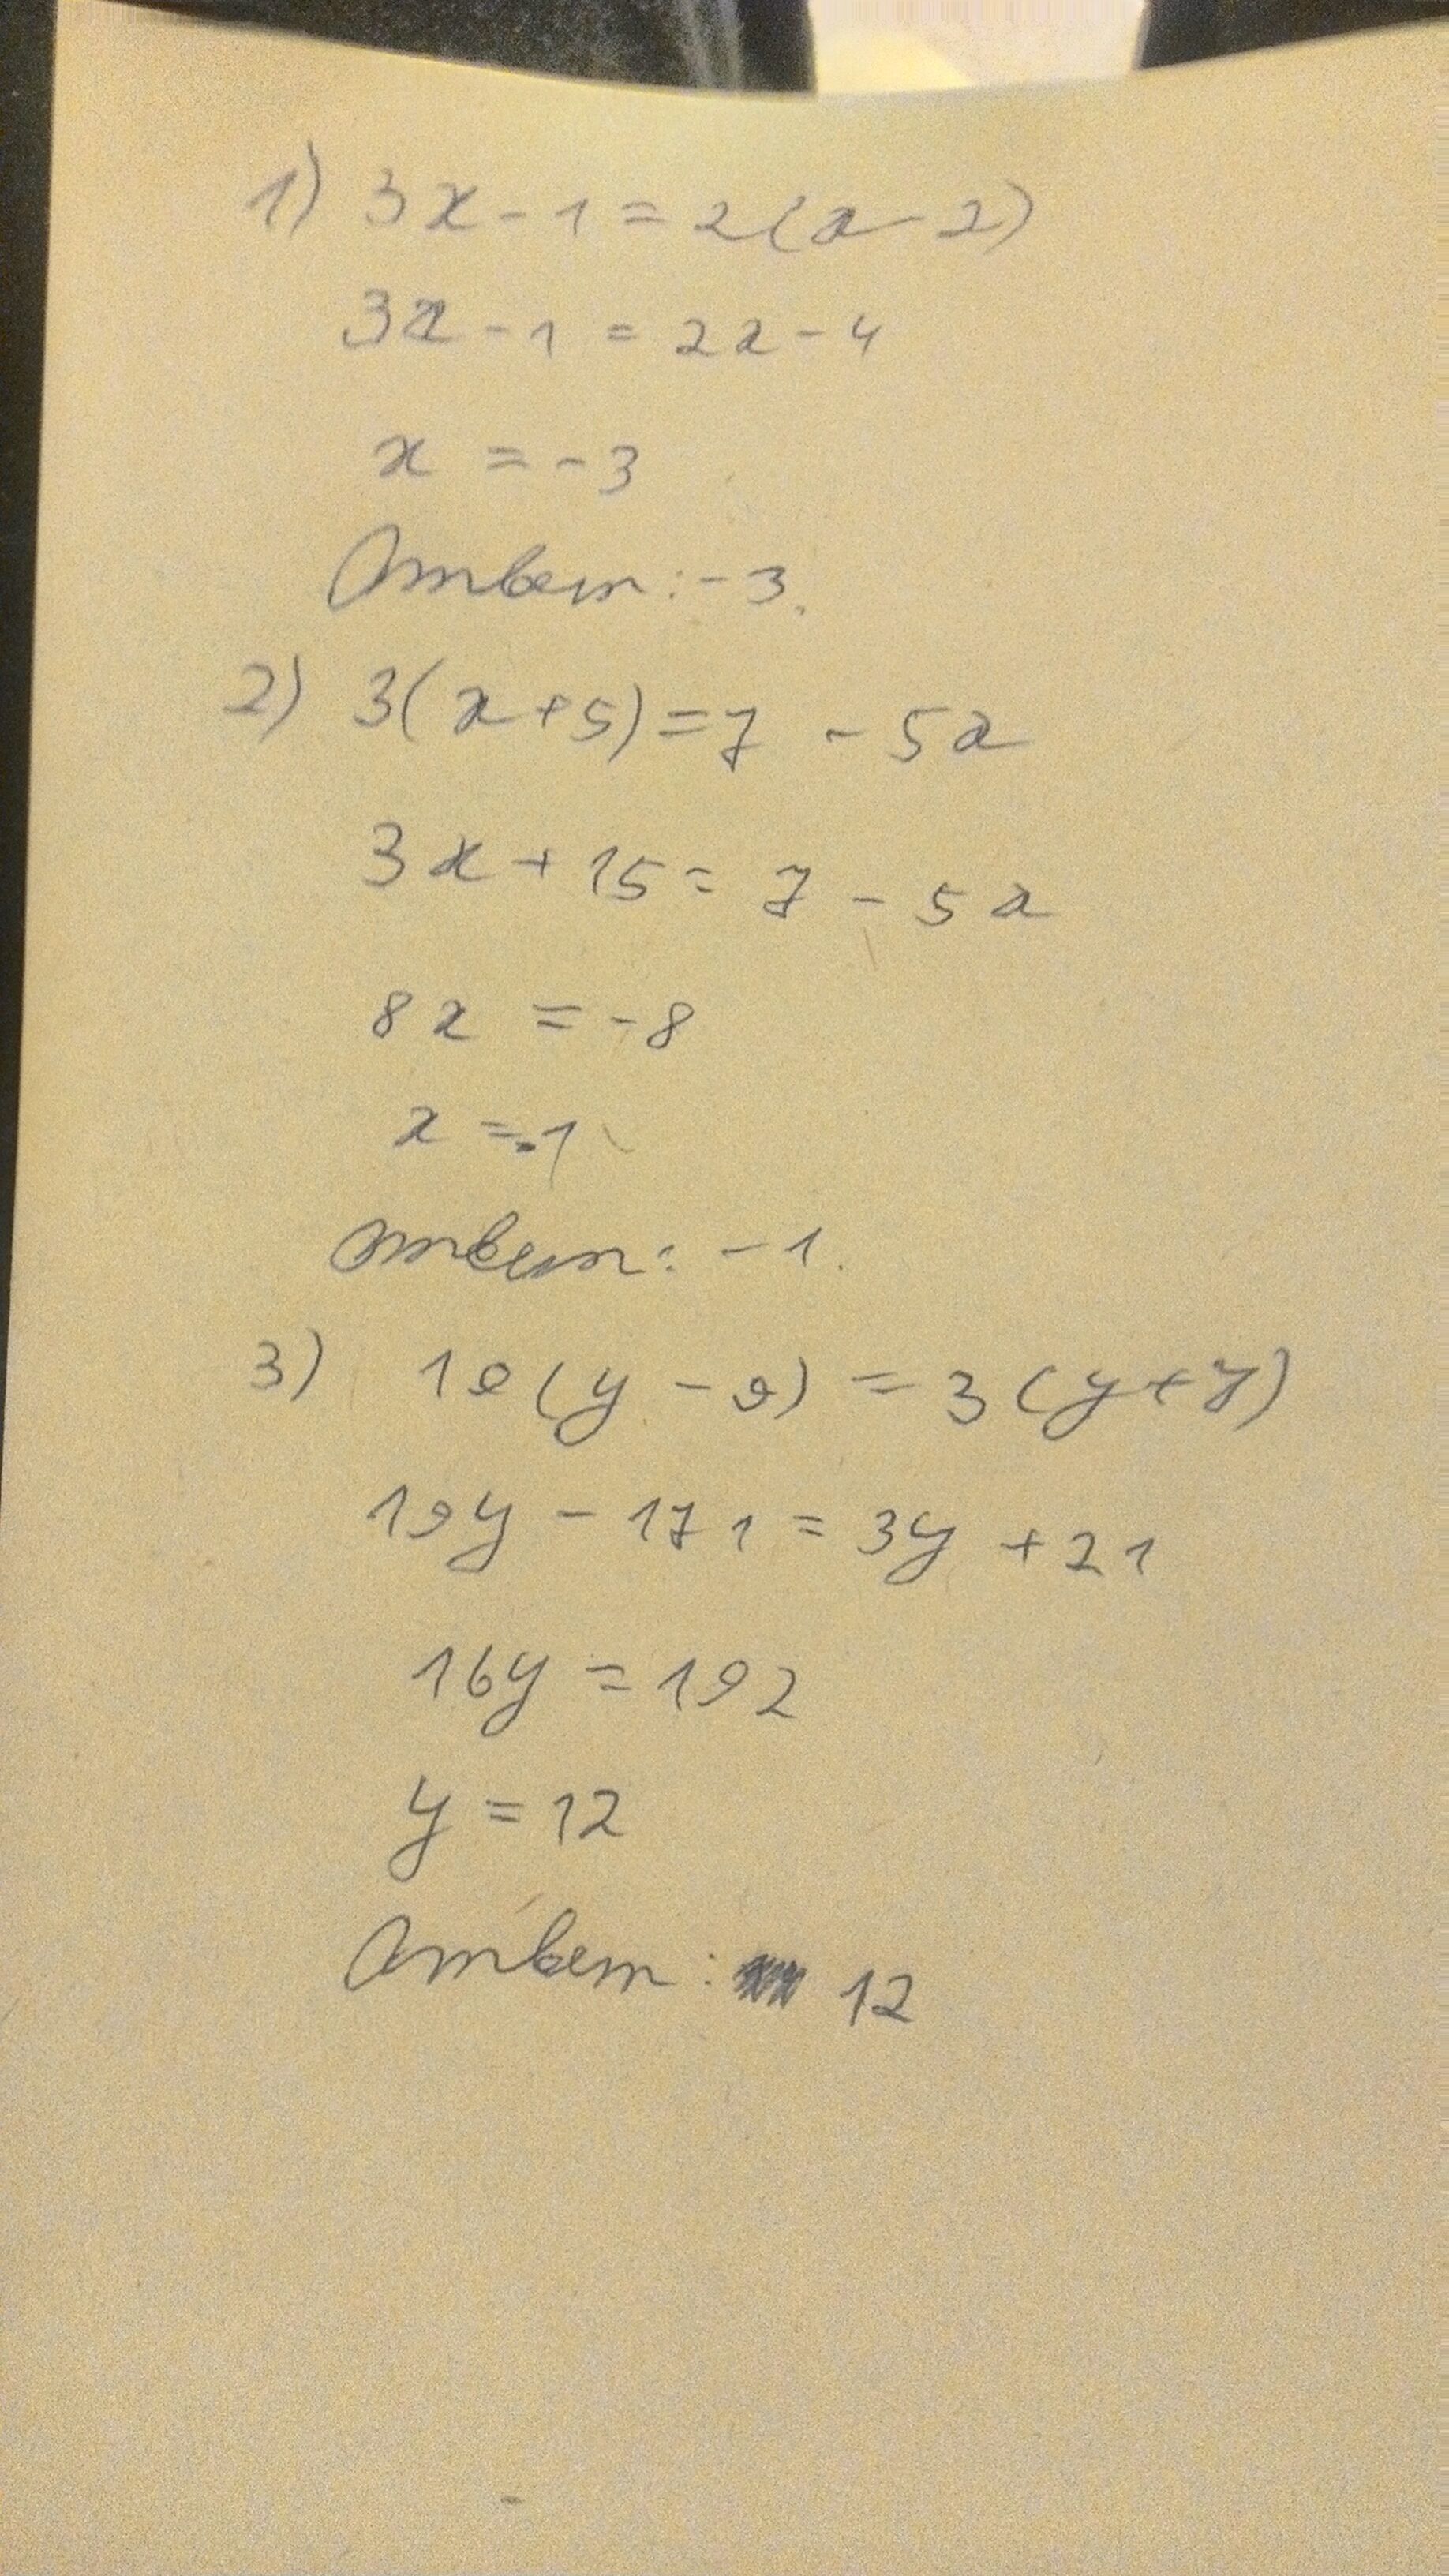 1) 3x - 1 = 2(x - 2)
3x - 1 = 2x - 4
x = -3
Ответ: -3.
2) 3(x+5) = 7 - 5x
3x + 15 = 7 - 5x
8x = -8
x = -1
Ответ: -1.
3) 19(y - 9) = 3(y+7)
19y - 171 = 3y + 21
16y = 192
y = 12
Ответ: 12